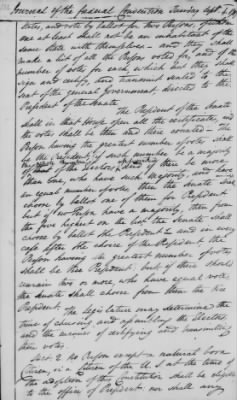 Journal of the federal Convention Tuesday Sept 4 1787
States, and vote by ballot for two Persons, of whom
one at least shall not be an inhabitant of the
same State with themselves - and they shall
make a list of all the Persons voted for, and of the
number of votes for each which list they shall
sign and certify, and transmit sealed to the
seat of the general Government directed to the
President of the Senate
The President of the Senate
shall in that House open all the certificates, and
the votes shall be then and there counted - The
Person having the greatest number of votes shall
be the President, if such number be a majority
of that of the Electors and if there be more
than one, who have such Majority, and have
an equal number of votes, then the Senate shall
choose by ballot one of them for President
but if no Person have a majority, then from
the five highest on the list the Senate shall
choose by ballot the President and in every
case after the choice of the President the
Person having the greatest number of votes
shall be Vice President. but if there should
remain two or more, who have equal votes,
the Senate shall choose from them the Vice
President. The legislature may determine the
time of chusing and assembling the Electors
and the manner of certifying and transmitting
their votes.
Sect 2. No Person except a natural born
Citizen, or a Citizen of the U. S at the time of
the adoption of this Constitution shall be eligible
to the office of President: nor shall any